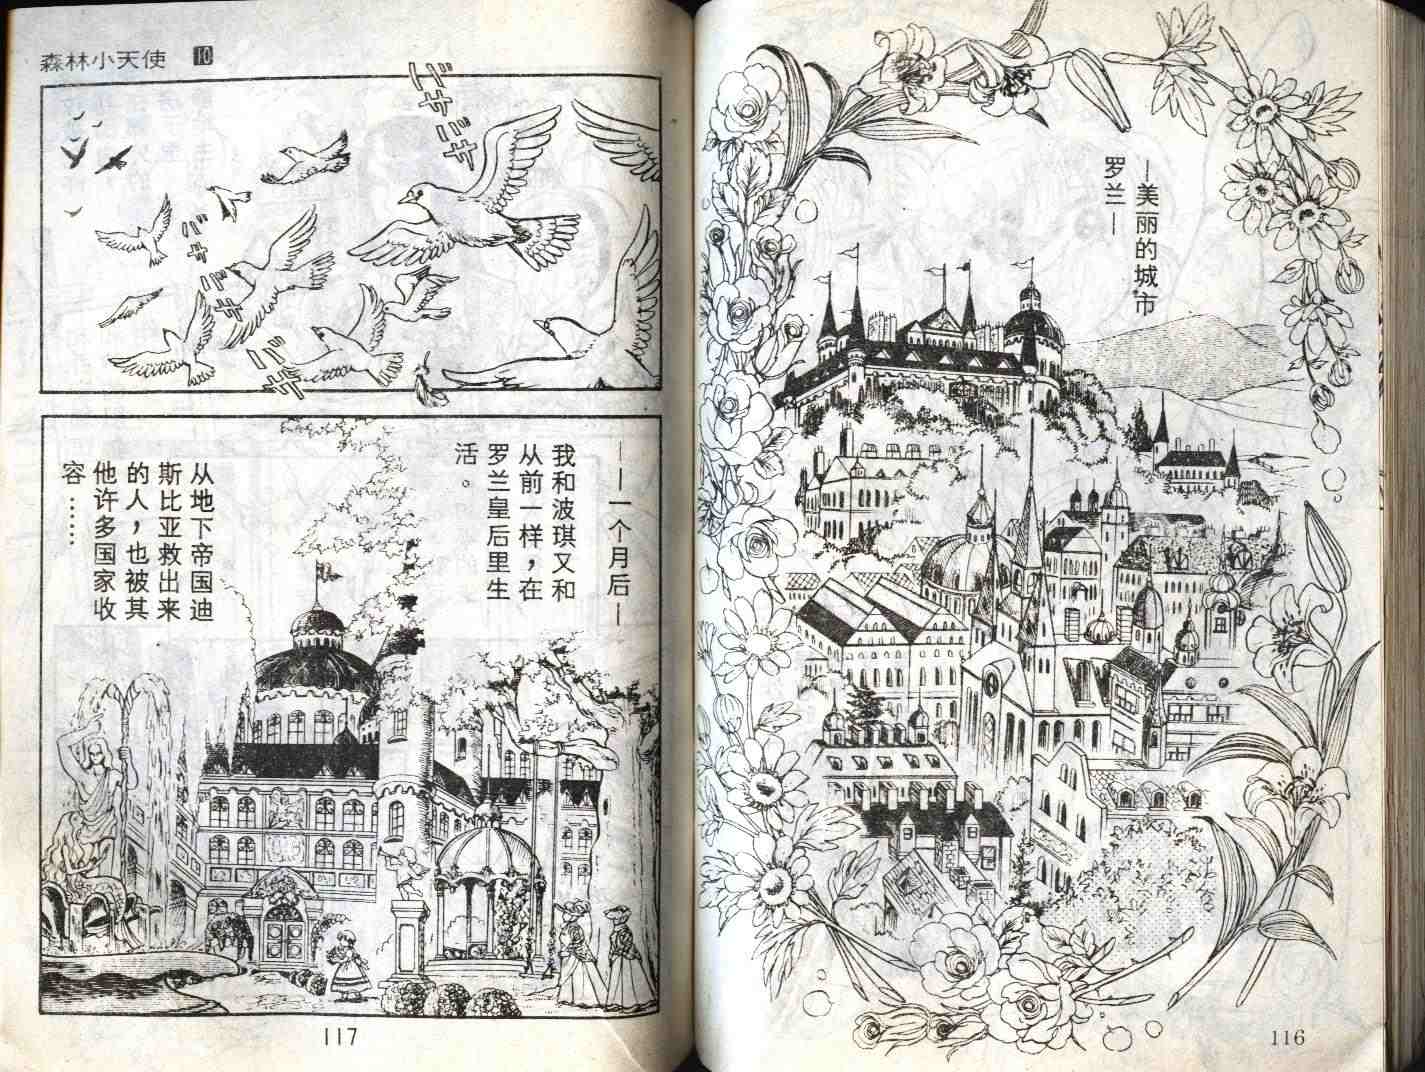 —美丽的城市
罗兰—
116
森林小天使 10
ビャ
ビャ
ビャ
ビャ
ビャ
——一个月后—
我和波琪又和
从前一样，在
罗兰皇后里生
活。
从地下帝国迪
斯比亚救出来
的人，也被其
他许多国家收
容……
117